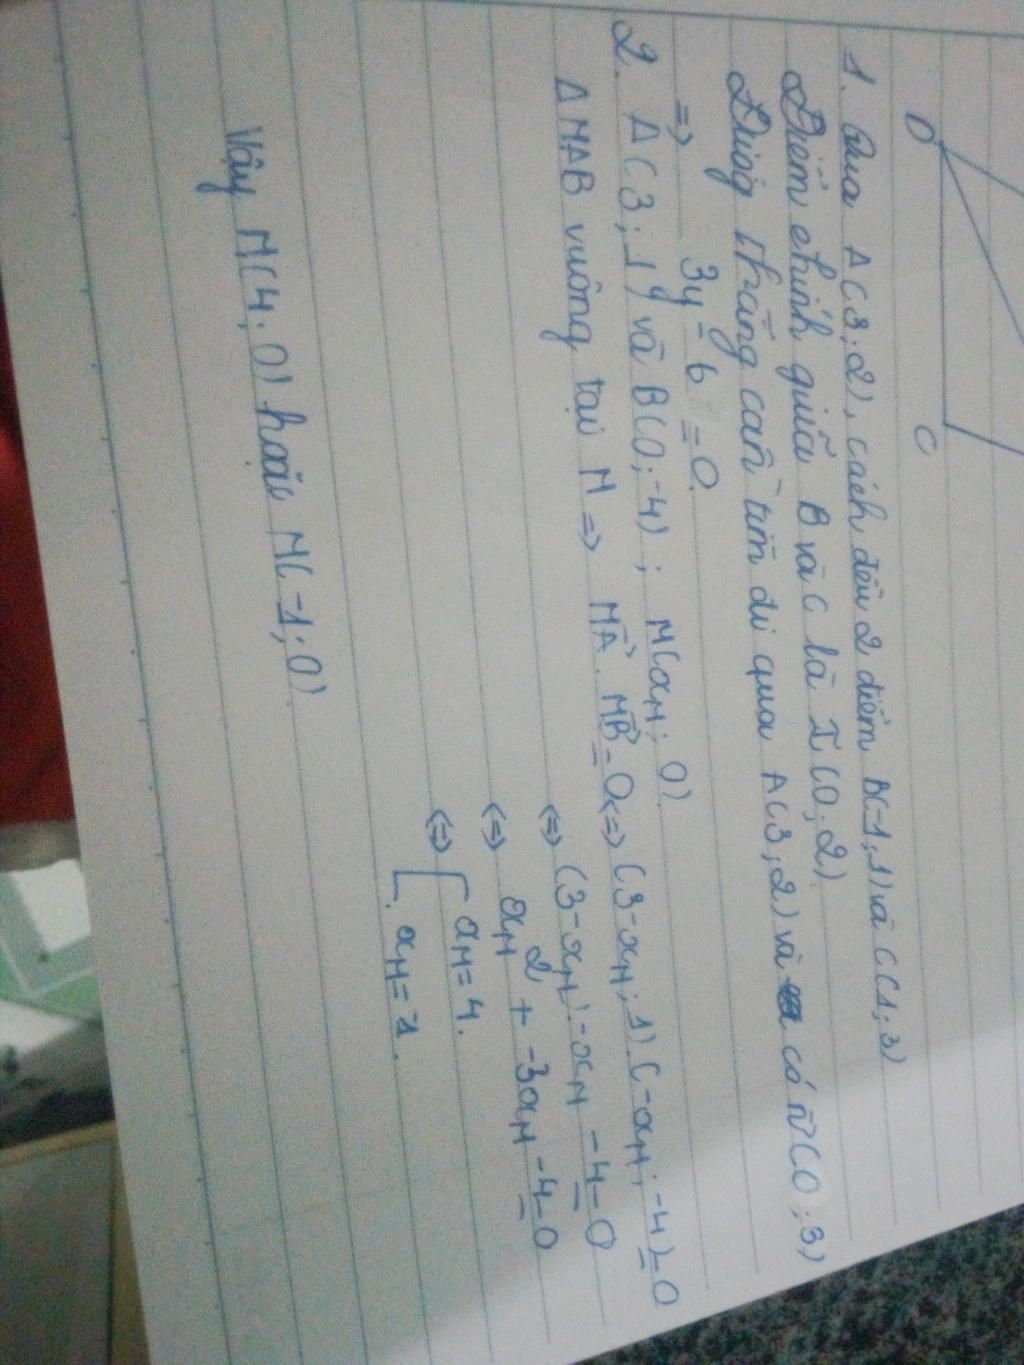 D C
1. Qua A(3;2), cách đều 2 điểm B(-1;1) và C(1;3)
Điểm chính giữa B và C là I(0;2)
Đường thẳng cần tìm đi qua A(3;2) và có n⃗(0;3)
=> 3y - 6 = 0.
2. A(3;1) và B(0;-4); M(x_M; 0)
Δ MAB vuông tại M => MA⃗ . MB⃗ = 0 <=> (3-x_M; 1).(-x_M; -4) = 0
<=> (3-x_M).-x_M - 4 = 0
<=> x_M² + -3x_M - 4 = 0
<=> [ x_M = 4.
x_M = -1.
Vậy M(4; 0) hoặc M(-1; 0)